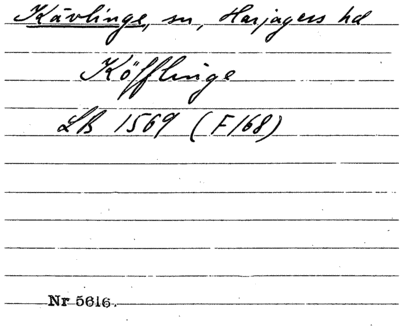 Kävlinge, sn, Harjagers hd
Köfflinge
LB 1569 (F168)
Nr 5616.